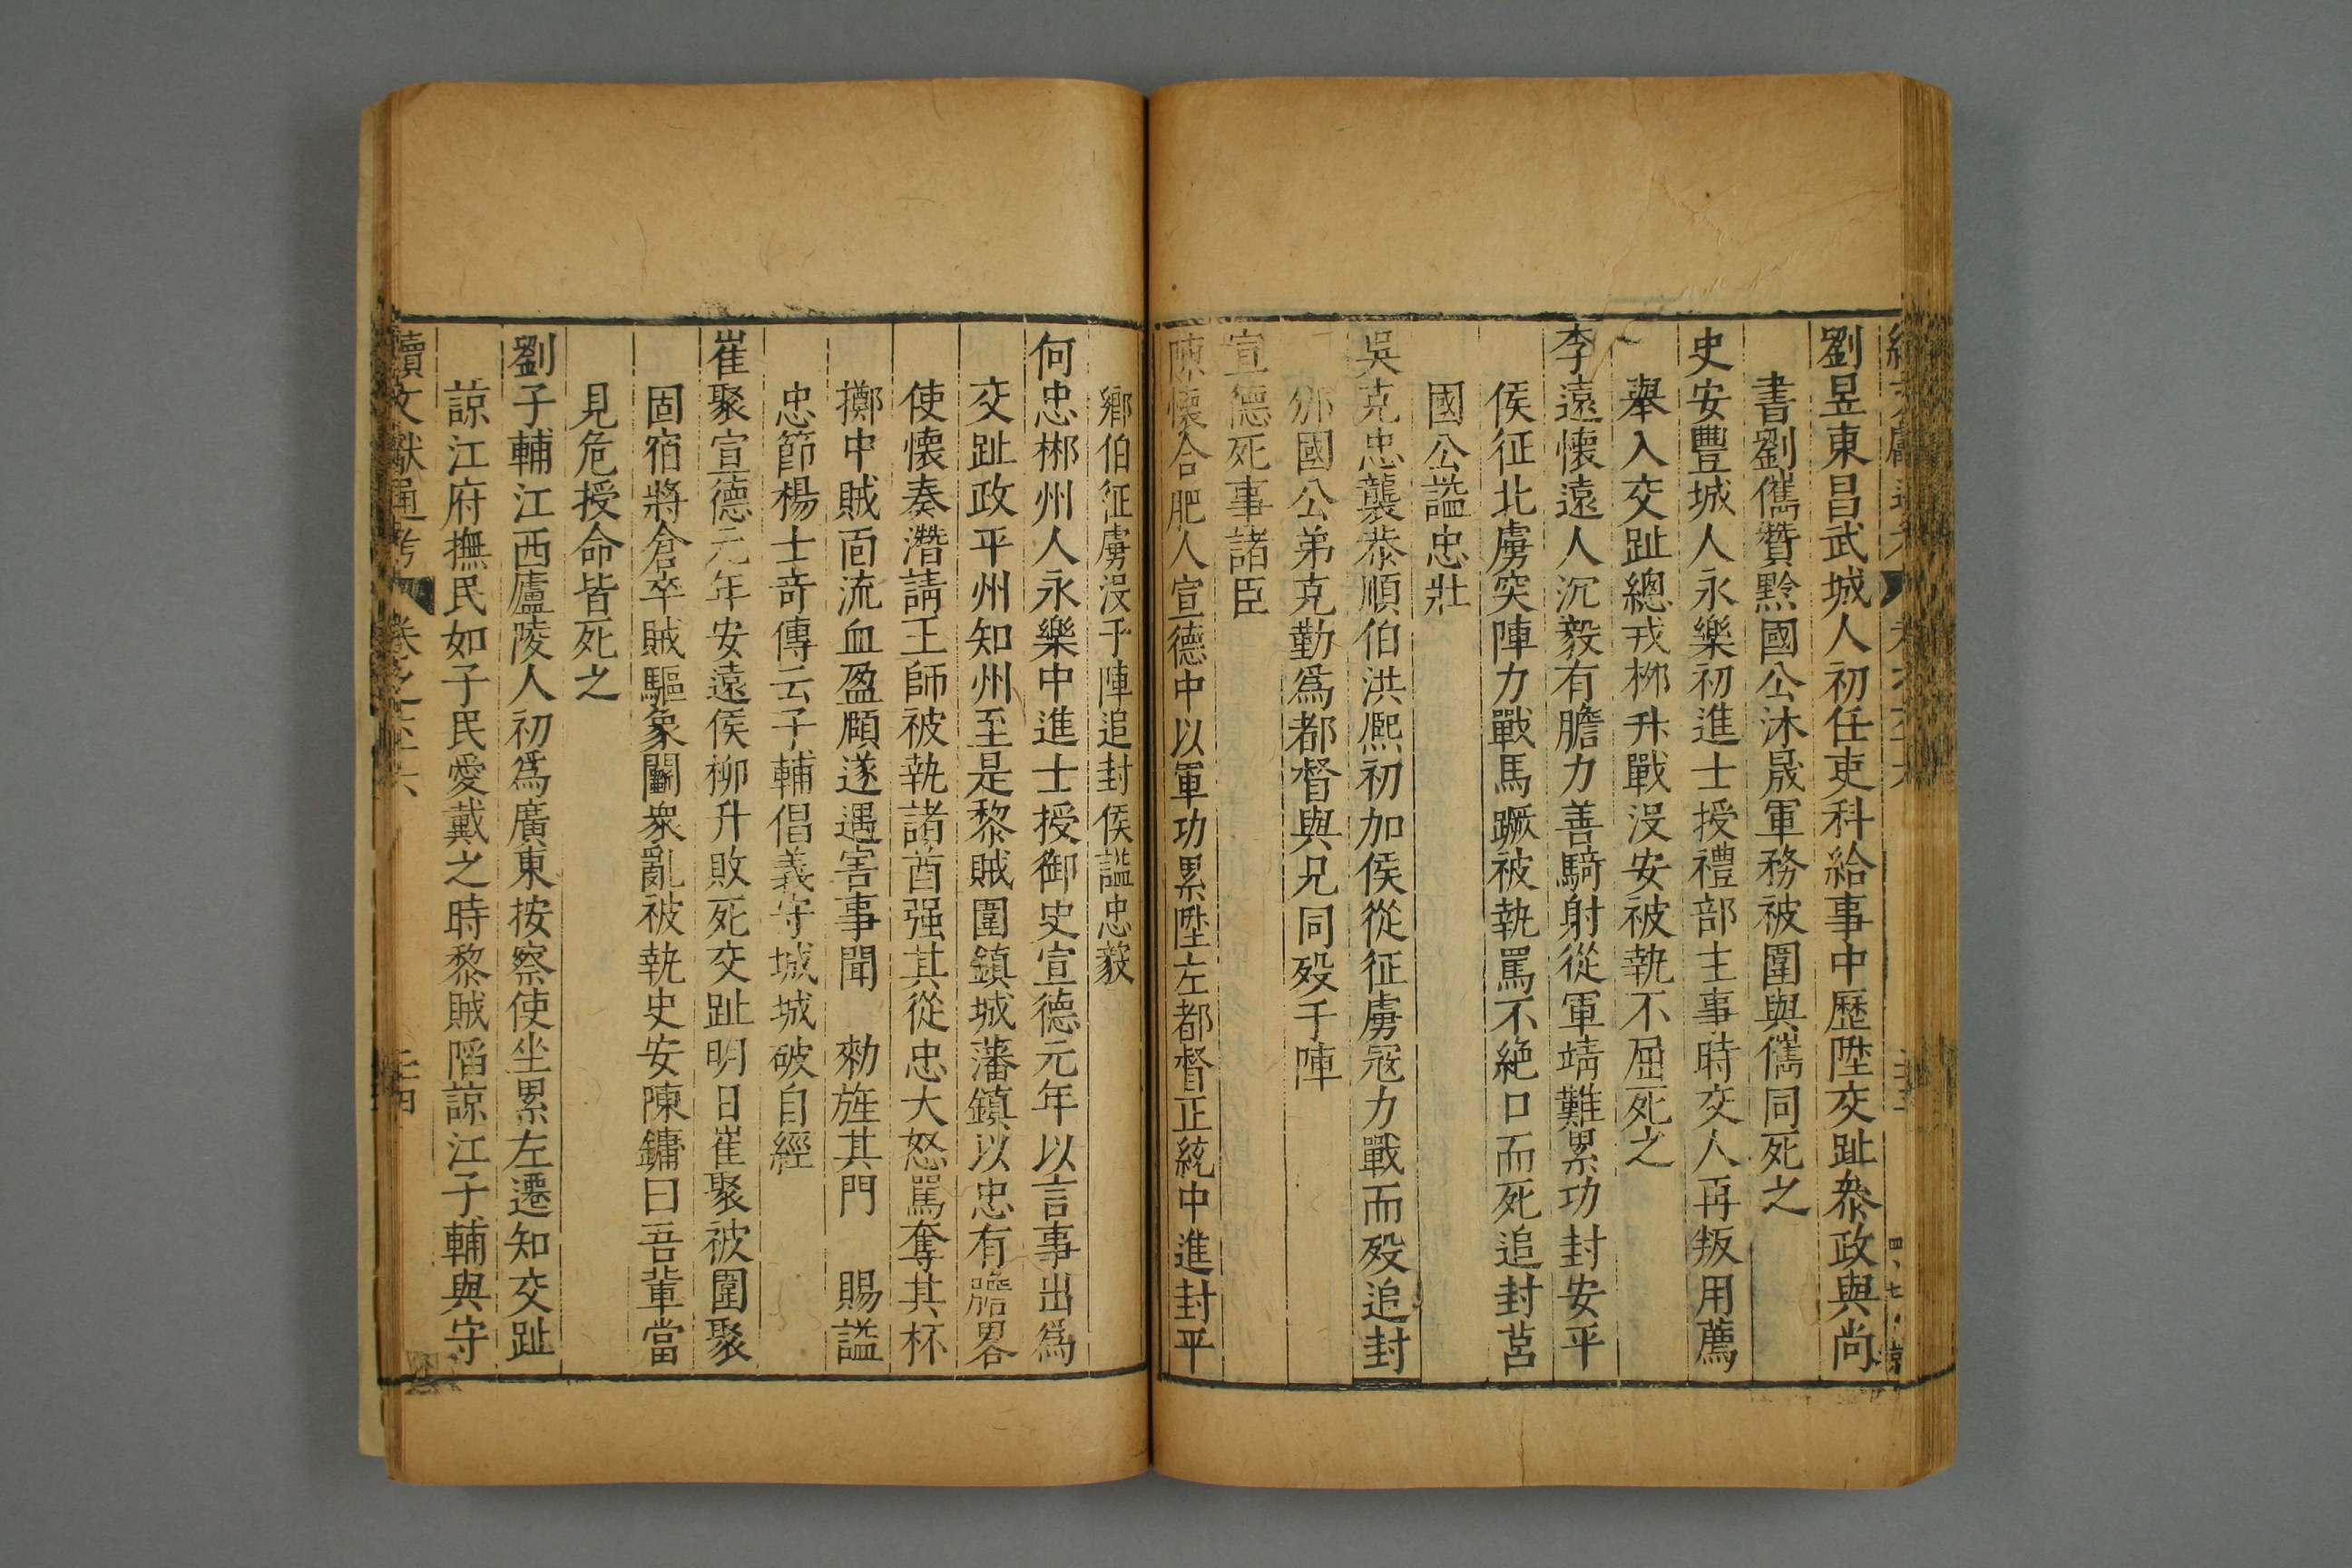 劉昱東昌武城人初任吏科給事中歷陞交趾叅政與尚
書劉儁贊黔國公沐晟軍務被圍與儁同死之
史安豐城人永樂初進士授禮部主事時交人再叛用薦
舉入交趾總戎栁升戰没安被執不屈死之
李遠懷遠人沉毅有膽力善騎射從軍靖難累功封安平
侯征北虜突陣力戰馬蹶被執罵不絶口而死追封莒
國公謚忠壯
吳克忠襲恭順伯洪熈初加侯從征虜宼力戰而殁追封
邠國公弟克勤爲都督與兄同殁于陣
宣德死事諸臣
陳懷合肥人宣德中以軍功累陞左都督正統中進封平
鄉伯征虜没于陣追封侯謚忠毅
何忠郴州人永樂中進士授御史宣德元年以言事出爲
交趾政平州知州至是黎賊圍鎮城藩鎮以忠有膽畧
使懷奏潛請王師被執諸酋强其從忠大怒罵奪其杯
擲中賊靣流血盈頋遂遇害事聞　勑旌其門　賜謚
忠節楊士竒傳云子輔倡義守城城破自經
崔聚宣德元年安遠侯柳升敗死交趾明日崔聚被圍聚
固宿將倉卒賊驅象闢衆亂被執史安陳鏞曰吾輩當
見危授命皆死之
劉子輔江西廬陵人初爲廣東按察使坐累左遷知交趾
諒江府撫民如子民愛戴之時黎賊陷諒江子輔與守
續文獻通考　卷之　六　二十四